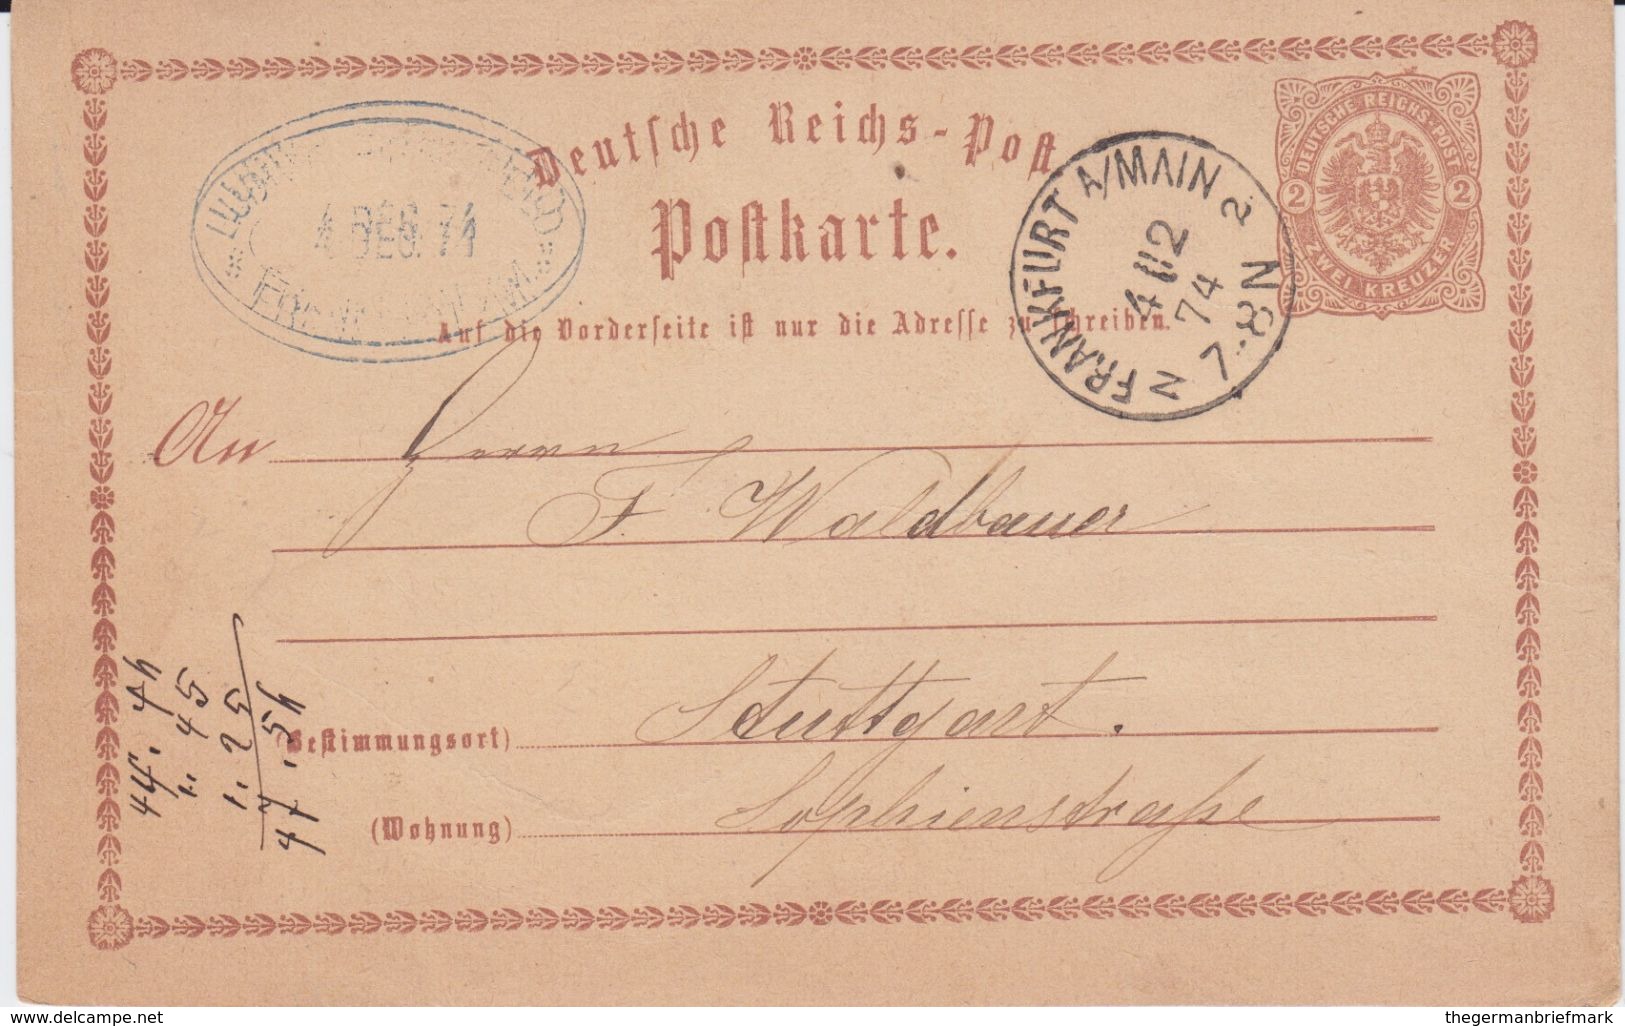 Deutsche Reichs-Post
Postkarte.
Auf die Vorderseite ist nur die Adresse zu schreiben.
DEUTSCHE REICHS-POST
2 2
ZWEI KREUZER
FRANKFURT A/MAIN 2
4 12
74
7-8N
N
4 DEC. 74
An Herrn
F. Waldbauer
(Bestimmungsort) Stuttgart.
(Wohnung) Sophienstraße
1. 45
1. 25
www.delcampe.net
thegermanbriefmark